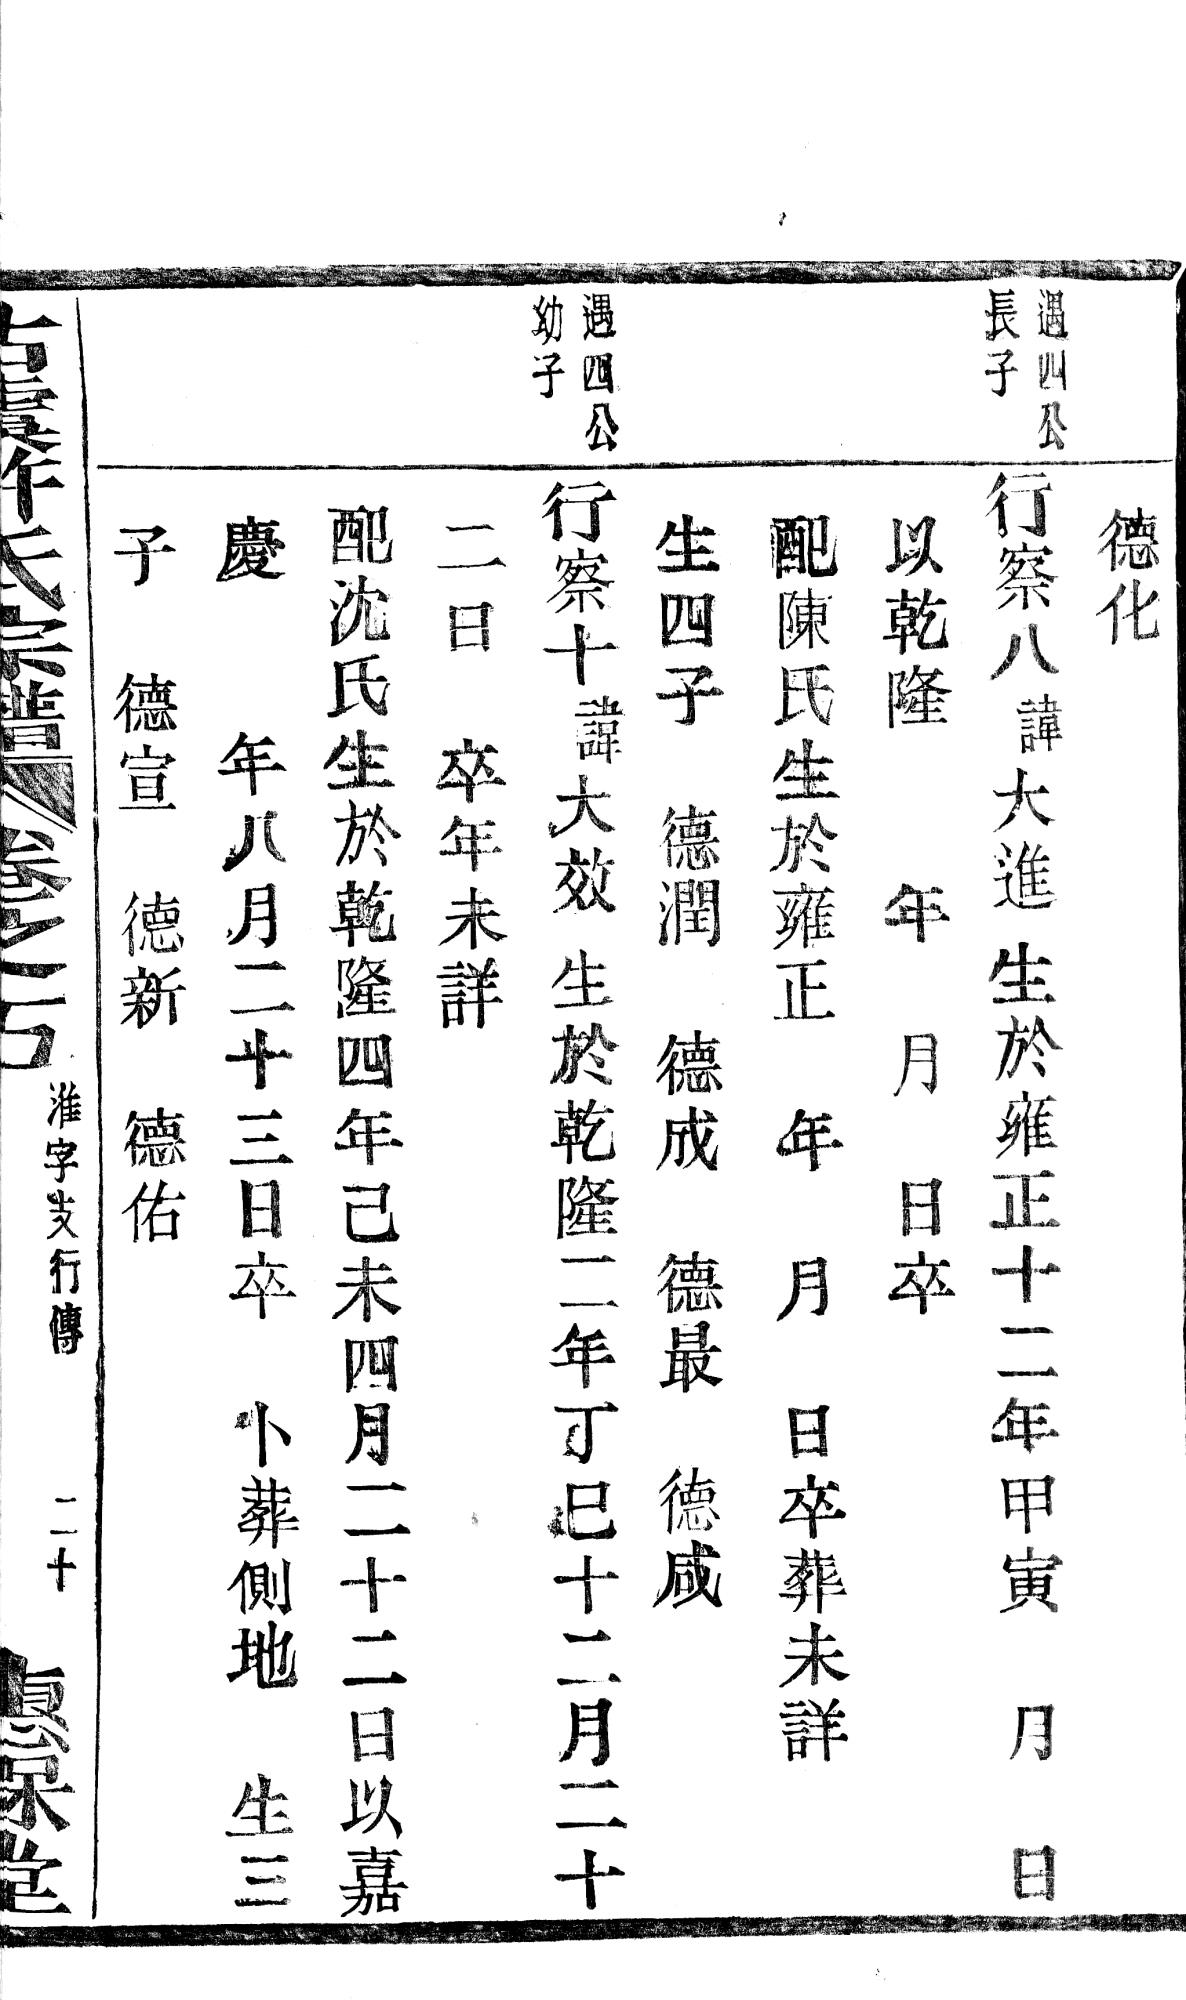 德化
遇四公
長子
行察八 諱大進 生於雍正十二年甲寅 月 日
以乾隆 年 月 日卒
配陳氏生於雍正 年 月 日卒葬未詳
生四子 德潤 德成 德最 德咸
遇四公
幼子
行察十 諱大效 生於乾隆二年丁巳十二月二十
二日 卒年未詳
配沈氏生於乾隆四年己未四月二十二日以嘉
慶 年八月二十三日卒 卜葬側地 生三
子 德宣 德新 德佑
古虞許氏宗譜 卷之 淮字支行傳 二十